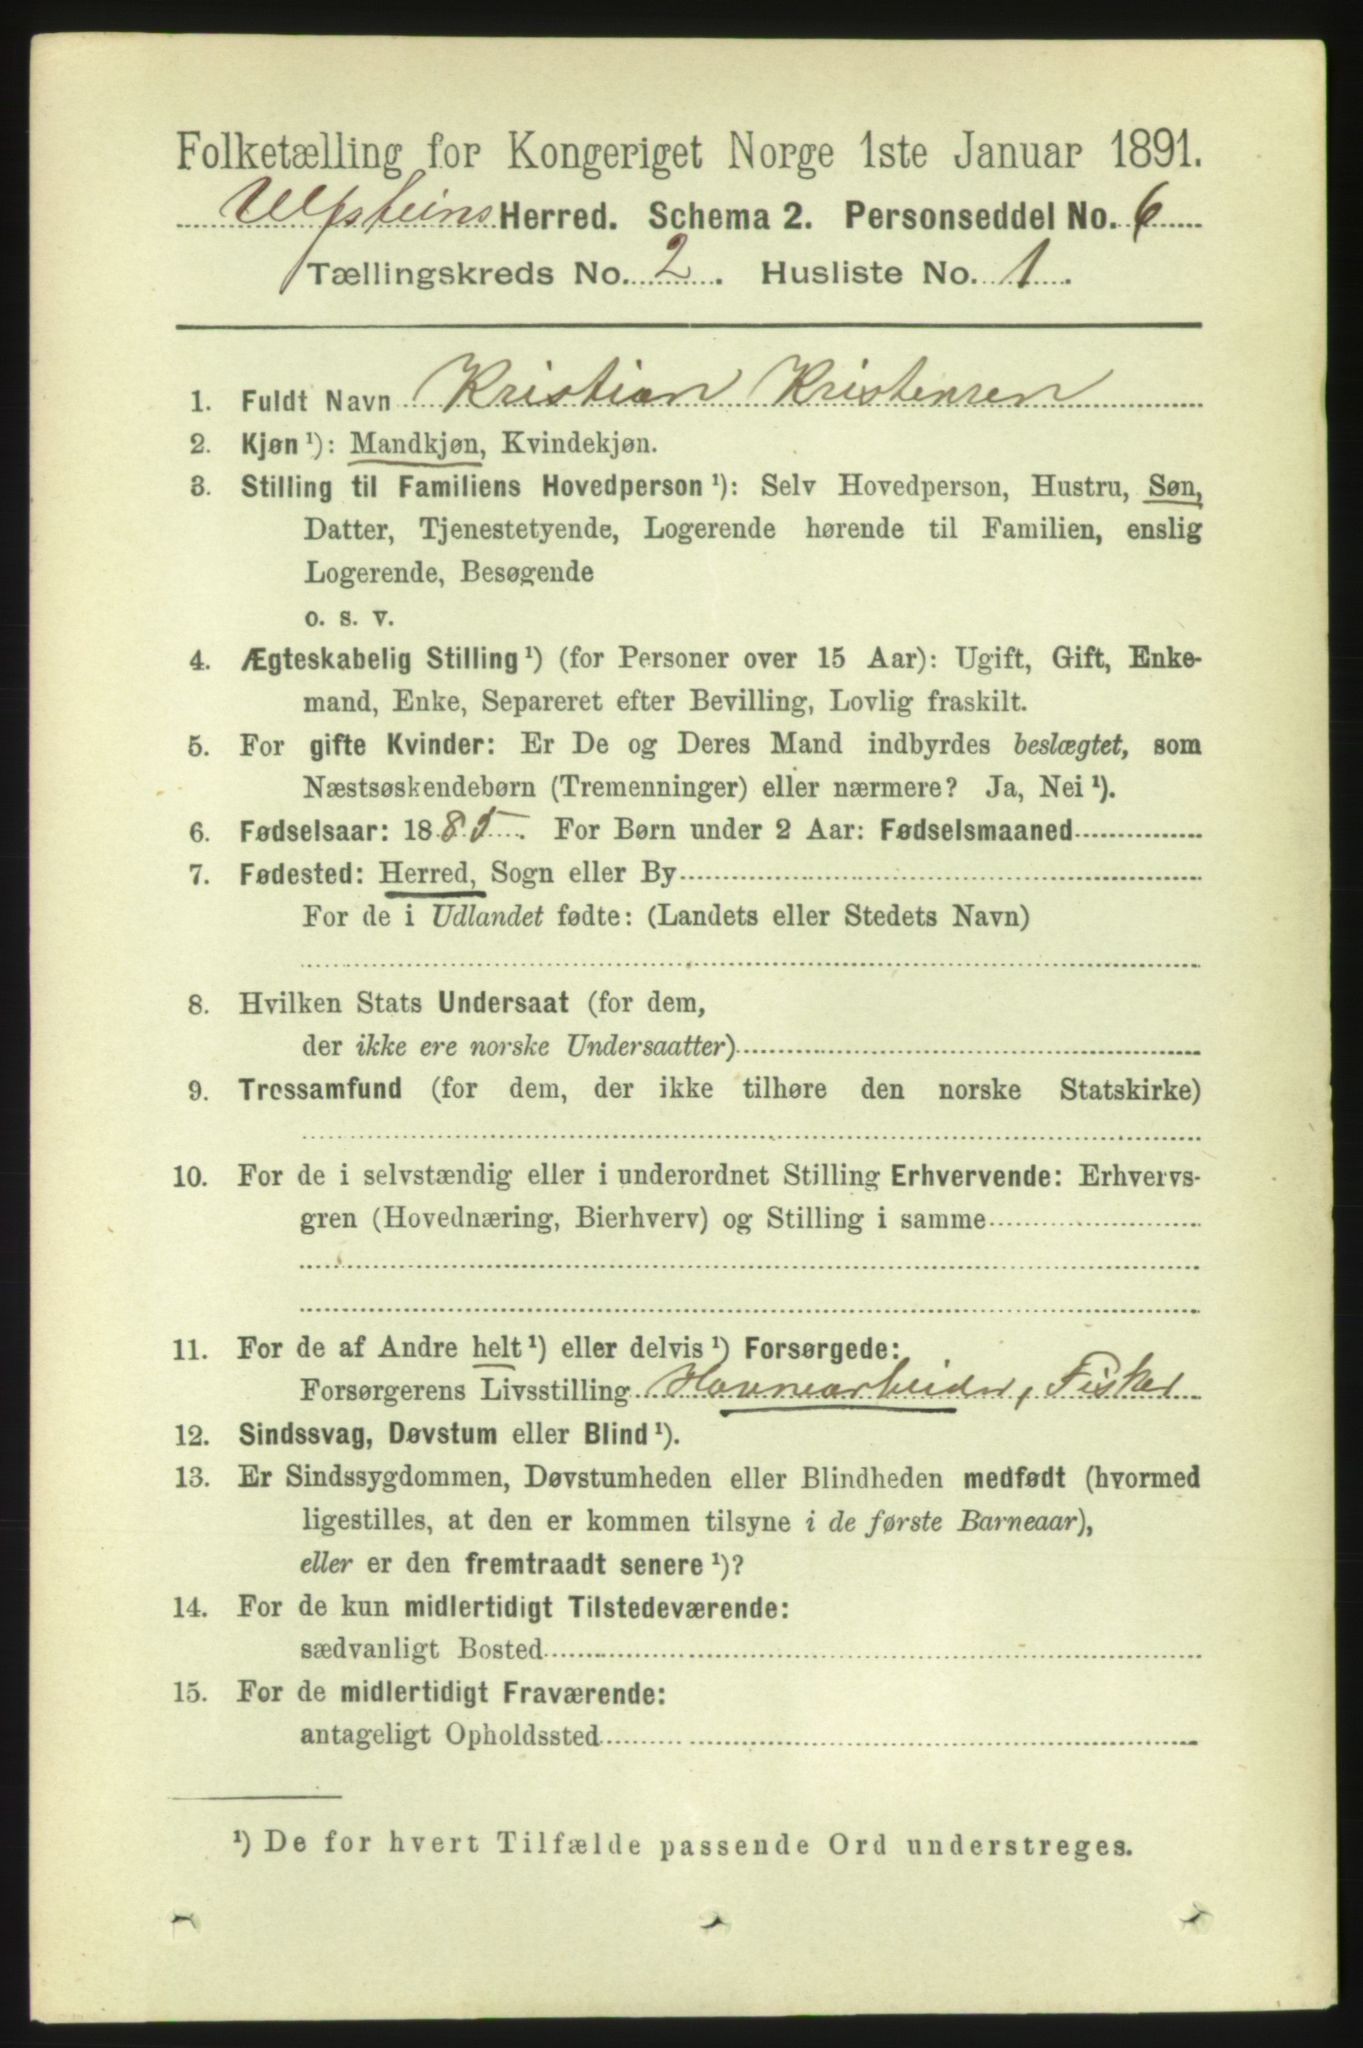 Folketælling for Kongeriget Norge 1ste Januar 1891.
Ulfsteins Herred. Schema 2. Personseddel No. 6
Tællingskreds No. 2. Husliste No. 1.
1. Fuldt Navn Kristian Kristensen
2. Kjøn ¹): Mandkjøn, Kvindekjøn.
3. Stilling til Familiens Hovedperson ¹): Selv Hovedperson, Hustru, Søn,
Datter, Tjenestetyende, Logerende hørende til Familien, enslig
Logerende, Besøgende
o. s. v.
4. Ægteskabelig Stilling ¹) (for Personer over 15 Aar): Ugift, Gift, Enke-
mand, Enke, Separeret efter Bevilling, Lovlig fraskilt.
5. For gifte Kvinder: Er De og Deres Mand indbyrdes beslægtet, som
Næstsøskendebørn (Tremenninger) eller nærmere? Ja, Nei ¹).
6. Fødselsaar: 1885. For Børn under 2 Aar: Fødselsmaaned
7. Fødested: Herred, Sogn eller By
For de i Udlandet fødte: (Landets eller Stedets Navn)
8. Hvilken Stats Undersaat (for dem,
der ikke ere norske Undersaatter)
9. Trossamfund (for dem, der ikke tilhøre den norske Statskirke)
10. For de i selvstændig eller i underordnet Stilling Erhvervende: Erhvervs-
gren (Hovednæring, Bierhverv) og Stilling i samme
11. For de af Andre helt ¹) eller delvis ¹) Forsørgede:
Forsørgerens Livsstilling Havnearbeider, Fisker
12. Sindssvag, Døvstum eller Blind ¹).
13. Er Sindssygdommen, Døvstumheden eller Blindheden medfødt (hvormed
ligestilles, at den er kommen tilsyne i de første Barneaar),
eller er den fremtraadt senere ¹)?
14. For de kun midlertidigt Tilstedeværende:
sædvanligt Bosted
15. For de midlertidigt Fraværende:
antageligt Opholdssted
¹) De for hvert Tilfælde passende Ord understreges.